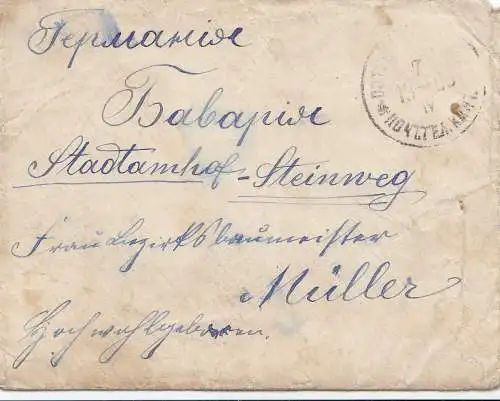 Германія
Баварія
Stadtamhof-Steinweg
Frau Bezirksbaumeister
Müller
Hochwohlgeboren.
7
IV